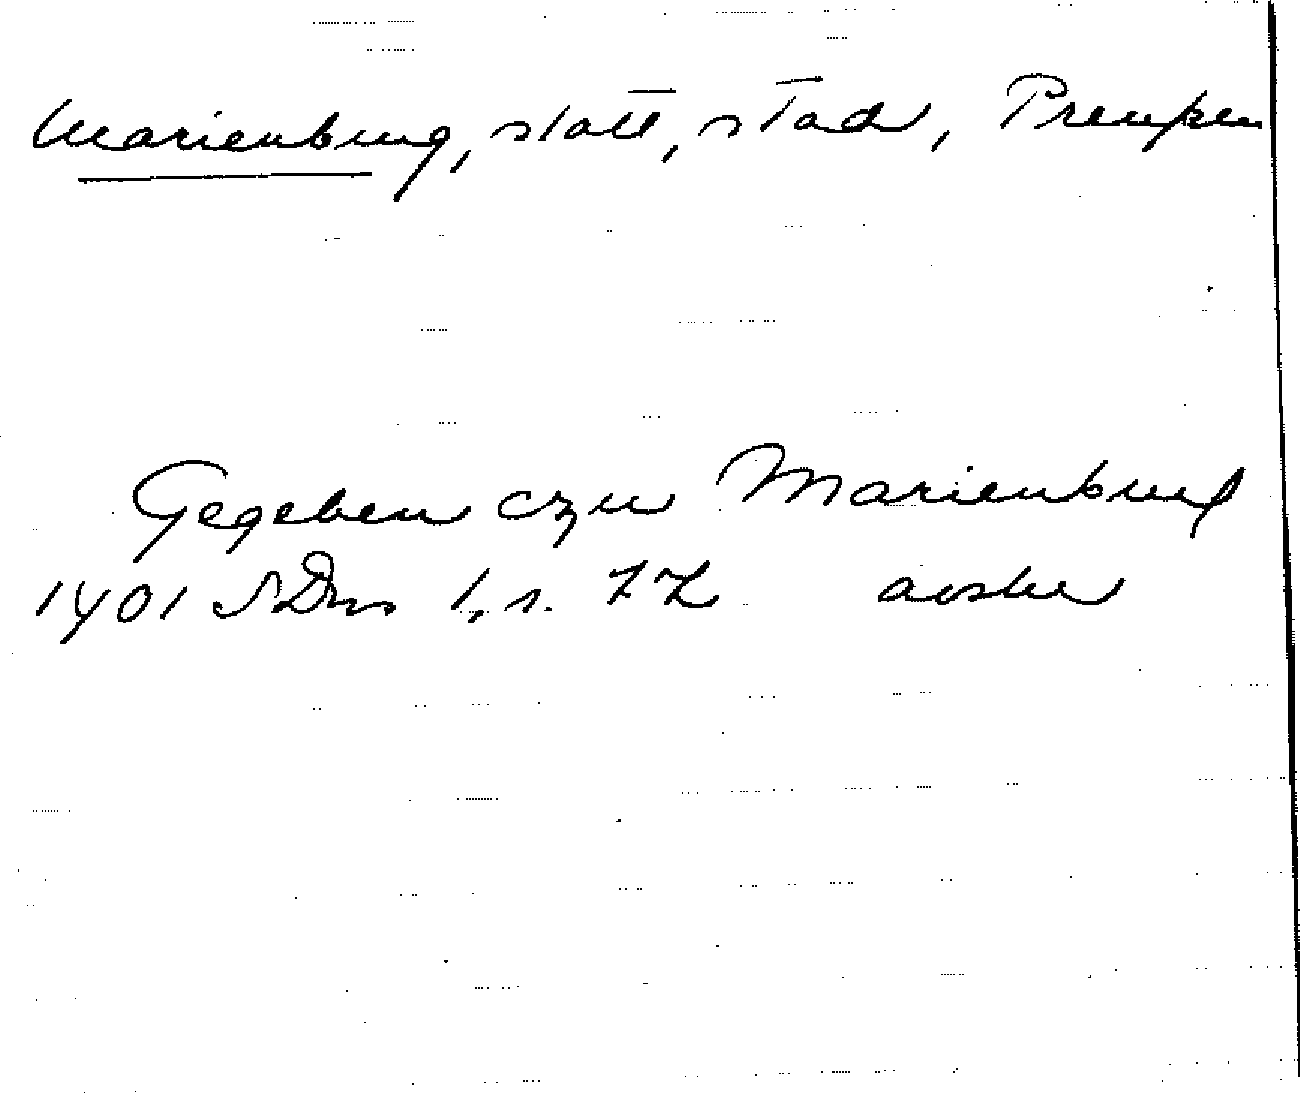 Marienburg, statt, stad, Preußen
Gegeben czu Marienburg
1401 SDm 1, s. 72